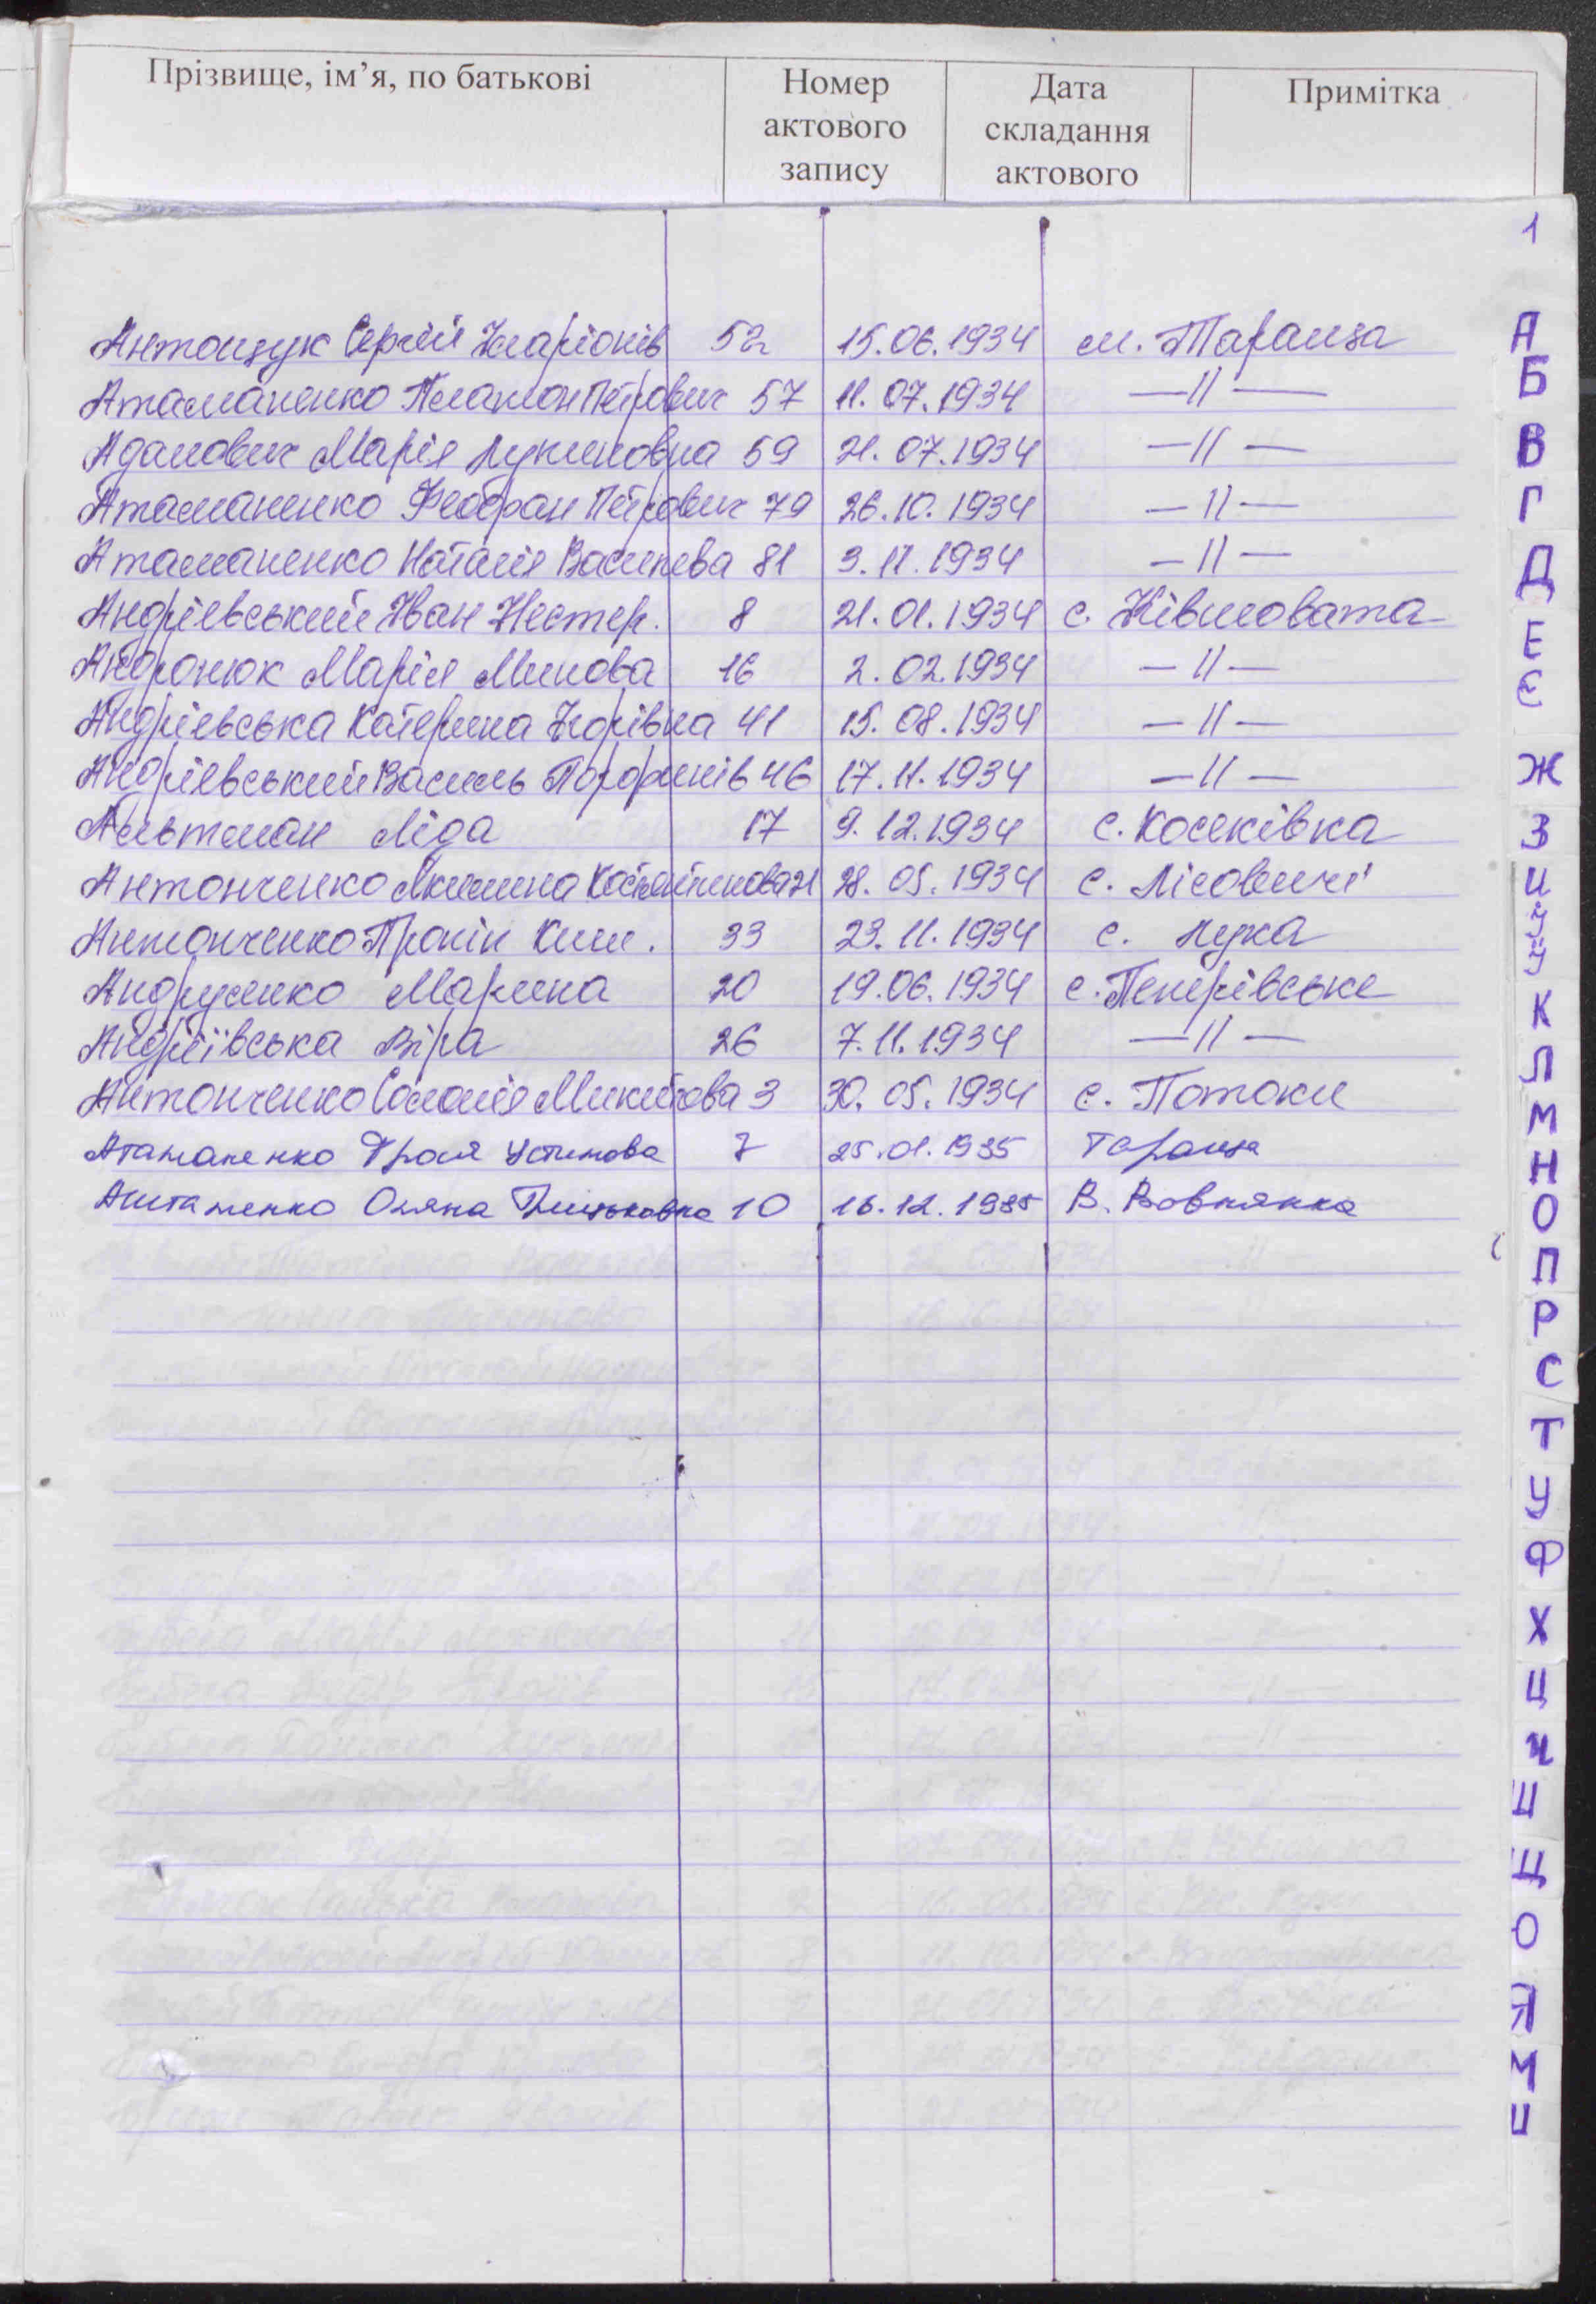 Прізвище, ім’я, по батькові Номер актового запису Дата складання актового Примітка
1
Антощук Сергій Іларіонів 52 15.06.1934 м. Тараща
Атаманенко Платон Петрович 57 11.07.1934 —//—
Адамович Марія Лукиновна 59 21.07.1934 —//—
Атаманенко Феофан Петрович 79 26.10.1934 —//—
Атаманенко Наталія Василева 81 3.11.1934 —//—
Андрієвський Іван Нестер. 8 21.01.1934 с. Ківшовата
Андронюк Марія Минова 16 2.02.1934 —//—
Андрієвська Катерина Ігорівна 41 15.08.1934 —//—
Андрієвський Василь Порфирів 46 17.11.1934 —//—
Альтман Ліда 17 9.12.1934 с. Косяківка
Антонченко Якилина Костянтинова 21 28.05.1934 с. Лісовичі
Антонченко Прокіп Ким. 33 23.11.1934 с. Лука
Андрусенко Марина 20 19.06.1934 с. Петрівське
Андріївська Віра 26 7.11.1934 —//—
Антонченко Соломія Микитова 3 30.05.1934 с. Потоки
Атаманенко Фрося Устимова 7 25.01.1935 Тараща
Оляна 10 16.12.1935 В. Вовнянка
А
Б
В
Г
Д
Е
Є
Ж
З
И
І
Ї
К
Л
М
Н
О
П
Р
С
Т
У
Ф
Х
Ц
Ч
Ш
Щ
Ю
Я